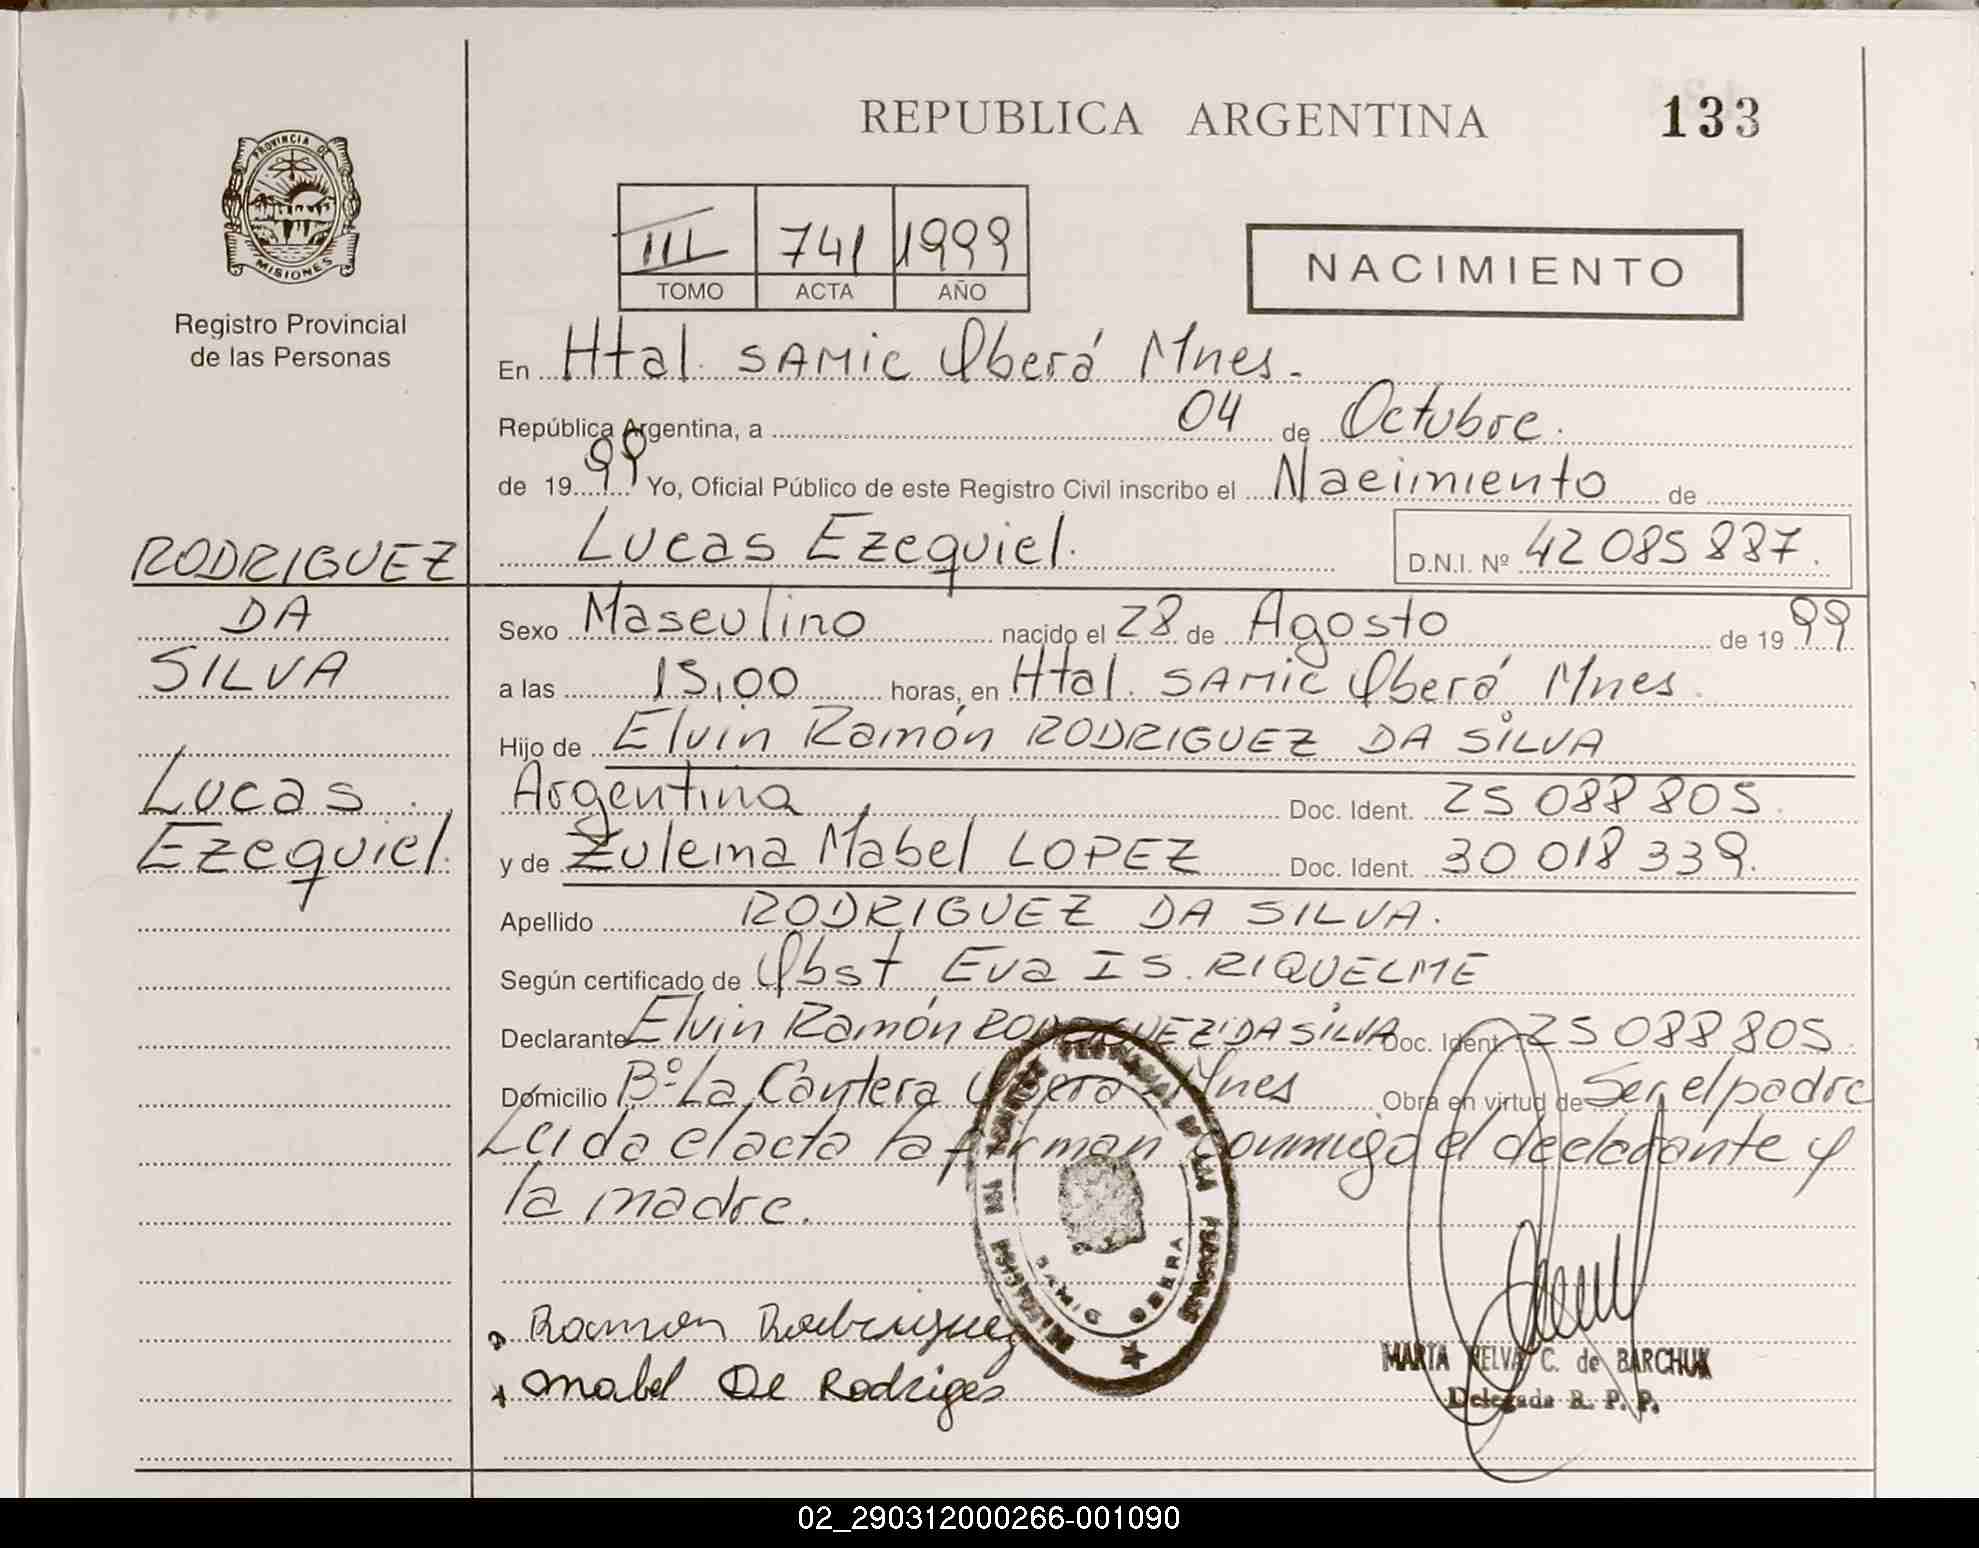 REPUBLICA ARGENTINA
133
PROVINCIA DE
MISIONES
Registro Provincial
de las Personas
III 741 1999
TOMO ACTA AÑO
NACIMIENTO
En Htal. SAMIC Oberá Mnes.
República Argentina, a 04 de Octubre.
de 1999 Yo, Oficial Público de este Registro Civil inscribo el Nacimiento de
Lucas Ezequiel. D.N.I. Nº 42 085 887.
RODRIGUEZ
DA
SILVA
Lucas
Ezequiel.
Sexo Masculino nacido el 28 de Agosto de 1999
a las 15,00 horas, en Htal. SAMIC Oberá Mnes.
Hijo de Elvin Ramón RODRIGUEZ DA SILVA
Argentina Doc. Ident. 25 088 805.
y de Zulema Mabel LOPEZ Doc. Ident. 30 018 339.
Apellido RODRIGUEZ DA SILVA.
Según certificado de Obst Eva IS. RIQUELME
Declarante Elvin Ramón RODRIGUEZ DA SILVA Doc. Ident. 25 088 805.
Domicilio Bº La Cantera Oberá Mnes Obra en virtud de Ser el padre
Leida el acta la firman conmigo el declarante y
la madre.
Ramon Rodriguez
Mabel De Rodriges
SAMIC OBERA
MARTA C. de BARCHUK
Delegada R. P. P.
02_290312000266-001090